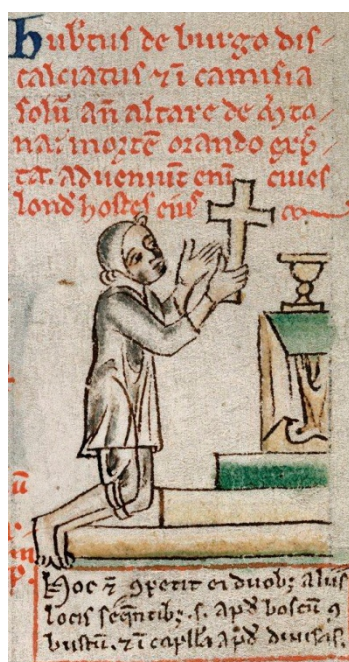 Hub̾tus de burgo dis-
calciatus ⁊ ĩ camisia
solũ añ altare de m̃to-
na: mortẽ orando exp̃-
ta. adueniũt enĩ ciues
lond hostes eius
Hoc ⁊̃ ꝯpetit ei duobꝫ aliis
locis seq̃ntibꝫ .s. apđ boscũ ꝯ
bustũ. ⁊ ĩ capll̃a apđ diuisas.